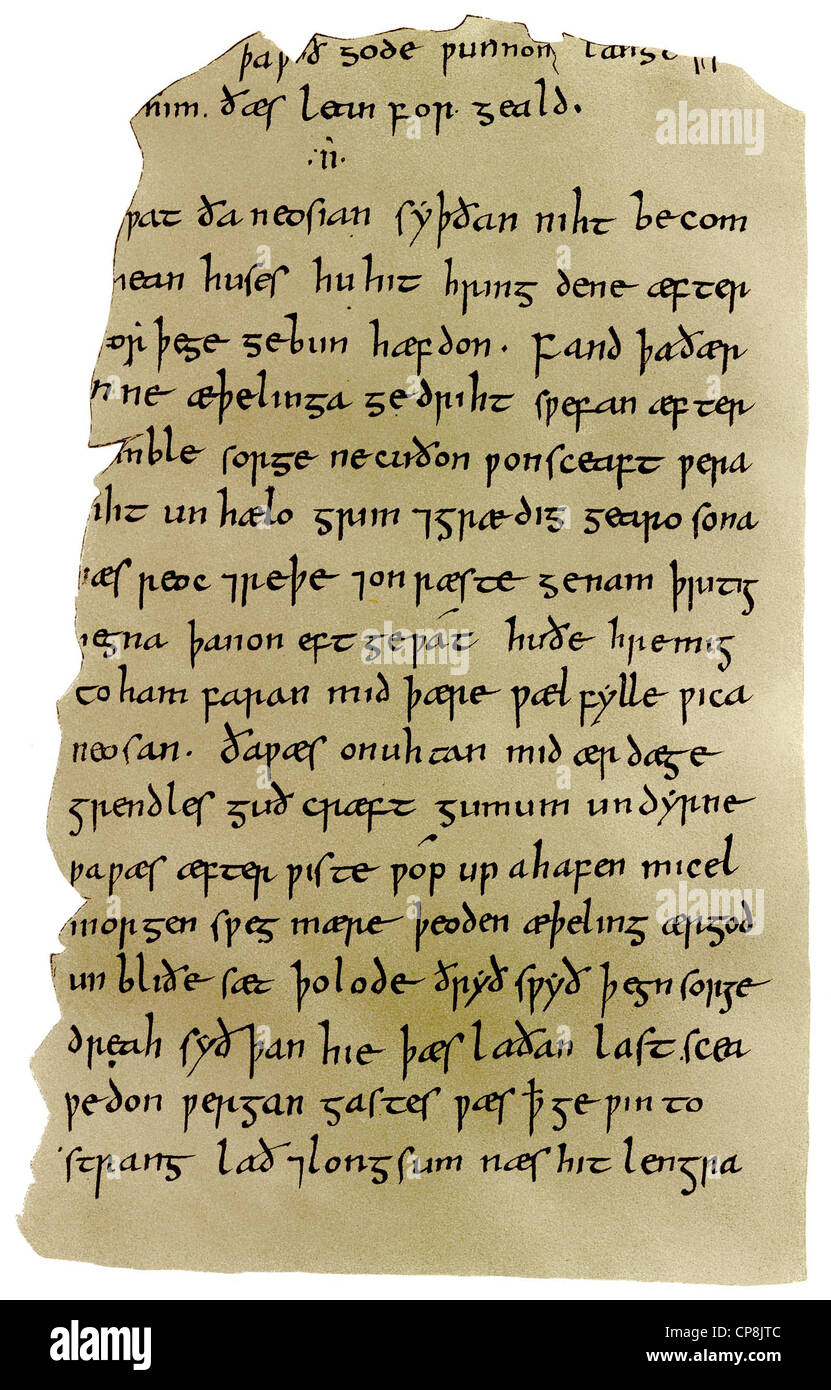 þa ƿið gode ƿunnon lange
him. ðæs lean for geald.
.ii.
ƿat ða neosian syþðan niht becom
hean huses hu hit hring dene æfter
beor þege gebun hæfdon. Fand þa ðær
inne æþelinga gedriht sƿefan æfter
symble sorge ne cuðon ƿonsceaft ƿera
ƿiht un hælo grim ⁊ grædig gearo sona
ƿæs reoc ⁊ reþe ⁊ on ræste genam þritig
þegna þanon eft geƿát huðe hremig
to ham faran mid þære ƿæl fylle ƿica
neosan. ða ƿæs on uhtan mid ær dæge
grendles guð cræft gumum undyrne
þa ƿæs æfter ƿiste ƿóp up ahafen micel
morgen sƿeg mære þeoden æþeling ærgod
un bliðe sæt þolode ðryð sƿyð þegn sorge
dreah syð þan hie þæs laðan last scea
ƿedon ƿergan gastes ƿæs ꝥ ge ƿin to
strang lað ⁊ longsum næs hit lengra
alamy
www.alamy.com
CP8JTC